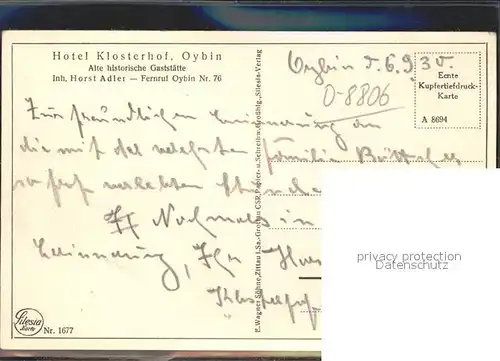 Hotel Klosterhof, Oybin
Alte historische Gaststätte
Inh. Horst Adler — Fernruf Oybin Nr. 76
Oybin d. 6.9.30.
O-8806
Echte
Kupfertiefdruck-
Karte
A 8694
Zur freundlichen Erinnerung an
die mit der Familie
so verlebten Stunden
Nochmals in
Erinnerung, Ihr
E. Wagner Söhne, Zittau i. Sa.-Grottau CSR, Papier- und Schreibw.-Großhlg., Silesia-Verlag
privacy protection
Datenschutz
Silesia
Karte
Nr. 1677